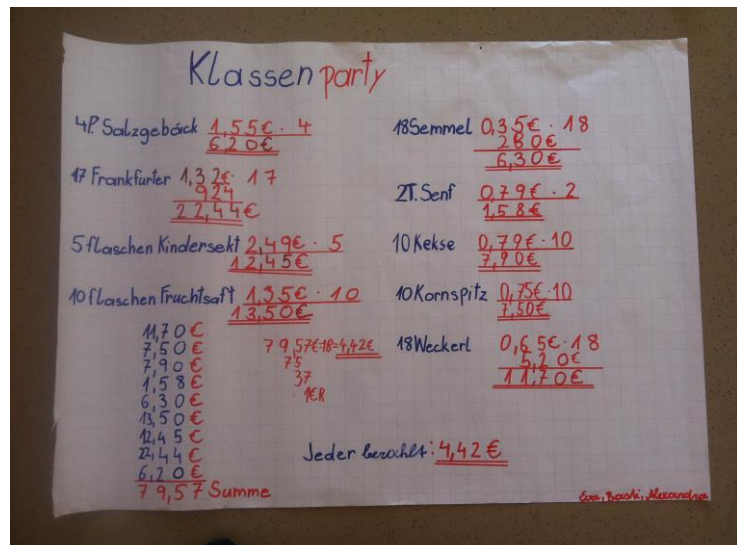 Klassenparty
4P. Salzgebäck 1,55€ · 4
6,20€
17 Frankfurter 1,32€ · 17
924
22,44€
5 flaschen Kindersekt 2,49€ · 5
12,45€
10 flaschen Fruchtsaft 1,35€ · 10
13,50€
11,70€
7,50€
7,90€
1,58€
6,30€
13,50€
12,45€
22,44€
6,20€
79,57 Summe
79,57€:18=4,42€
75
37
1€R
18 Semmel 0,35€ · 18
280€
6,30€
2T. Senf 0,79€ · 2
1,58€
10 Kekse 0,79€ · 10
7,90€
10 Kornspitz 0,75€ · 10
7,50€
18 Weckerl 0,65€ · 18
5,20€
11,70€
Jeder bezahlt: 4,42€
Eva, Basti, Alexandra